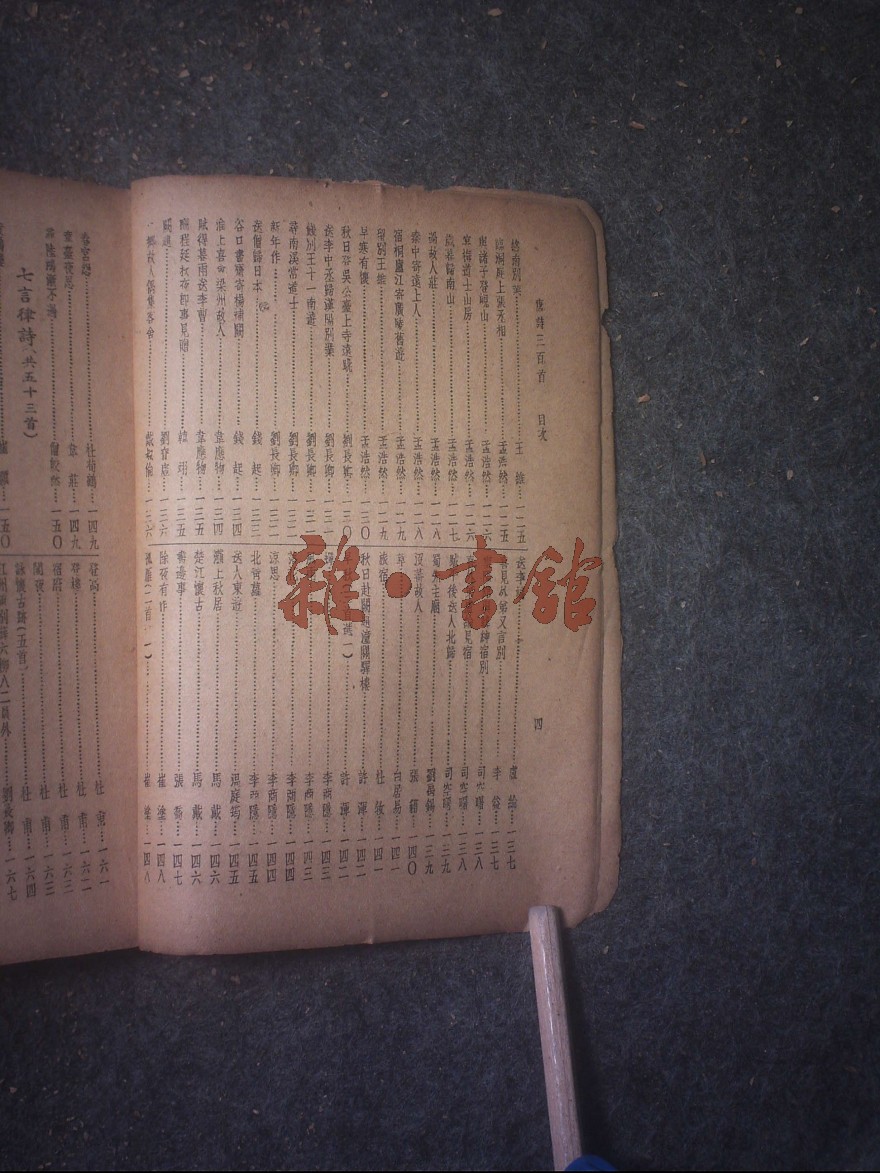 唐詩三百首 目次
四
終南別業 王維 一一五
臨洞庭上張丞相 孟浩然 一一五
與諸子登峴山 孟浩然 一一六
宴梅道士山房 孟浩然 一一六
歲暮歸南山 孟浩然 一一七
過故人莊 孟浩然 一一八
秦中寄遠上人 孟浩然 一一八
宿桐廬江寄廣陵舊遊 孟浩然 一一九
留別王維 孟浩然 一一九
早寒有懷 孟浩然 一二〇
秋日登吳公臺上寺遠眺 劉長卿
送李中丞歸漢陽別業 劉長卿
餞別王十一南遊 劉長卿
尋南溪常道士 劉長卿
新年作 劉長卿
送僧歸日本 錢起 一三三
谷口書齋寄楊補闕 錢起 一三四
淮上喜會梁州故人 韋應物 一三四
賦得暮雨送李曹 韋應物 一三五
酬程延秋夜即事見贈 韓翃 一三五
闕題 劉昚虛 一三六
江鄉故人偶集客舍 戴叔倫 一三六
盧綸 一三七
喜見外弟又言別 李益 一三七
宿別 司空曙 一三八
見宿 司空曙 一三八
賊平後送人北歸 司空曙 一三九
蜀先主廟 劉禹錫 一三九
沒蕃故人 張籍 一四〇
草 白居易 一四一
旅宿 杜牧 一四一
秋日赴闕題潼關驛樓 許渾 一四二
許渾 一四二
李商隱 一四三
李商隱 一四三
李商隱 一四四
涼思 李商隱 一四四
北青蘿 李商隱 一四五
送人東遊 溫庭筠 一四五
灞上秋居 馬戴 一四六
楚江懷古 馬戴 一四六
書邊事 張喬 一四七
除夜有作 崔塗 一四八
孤雁(二首一) 崔塗 一四八
春宮怨 杜荀鶴 一四九
章臺夜思 韋莊 一四九
尋陸鴻漸不遇 僧皎然 一五〇
七言律詩(共五十三首)
一五〇
登高 杜甫
登樓 杜甫 一六二
宿府 杜甫 一六三
閣夜 杜甫 一六三
詠懷古蹟(五首) 杜甫 一六四
劉長卿 一六七
雜·書館